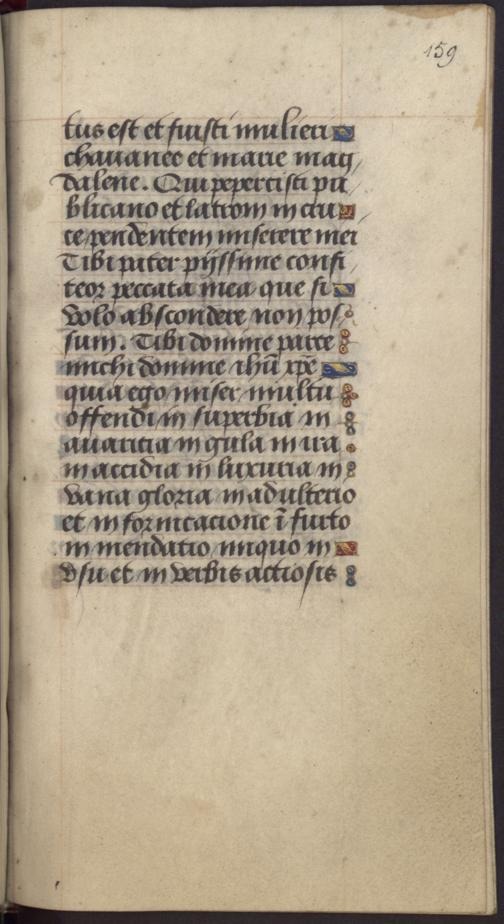 159
tus est et fuisti mulieri
chauanee et marie mag
dalene. Qui pepercisti pu
blicano et latroni in cru
ce pendentem miserere mei
Tibi pater pijssime confi
teor peccata mea que si
volo abscondere non pos
sum. Tibi domine parce
michi domine ihū xpē
quia ego miser multū
offendi in superbia in
auaritia in gula in ira
in accidia in luxuria in
vana gloria in adulterio
et in fornicacione ī furto
in mendatio iniquo in
vsu et in verbis actiosis